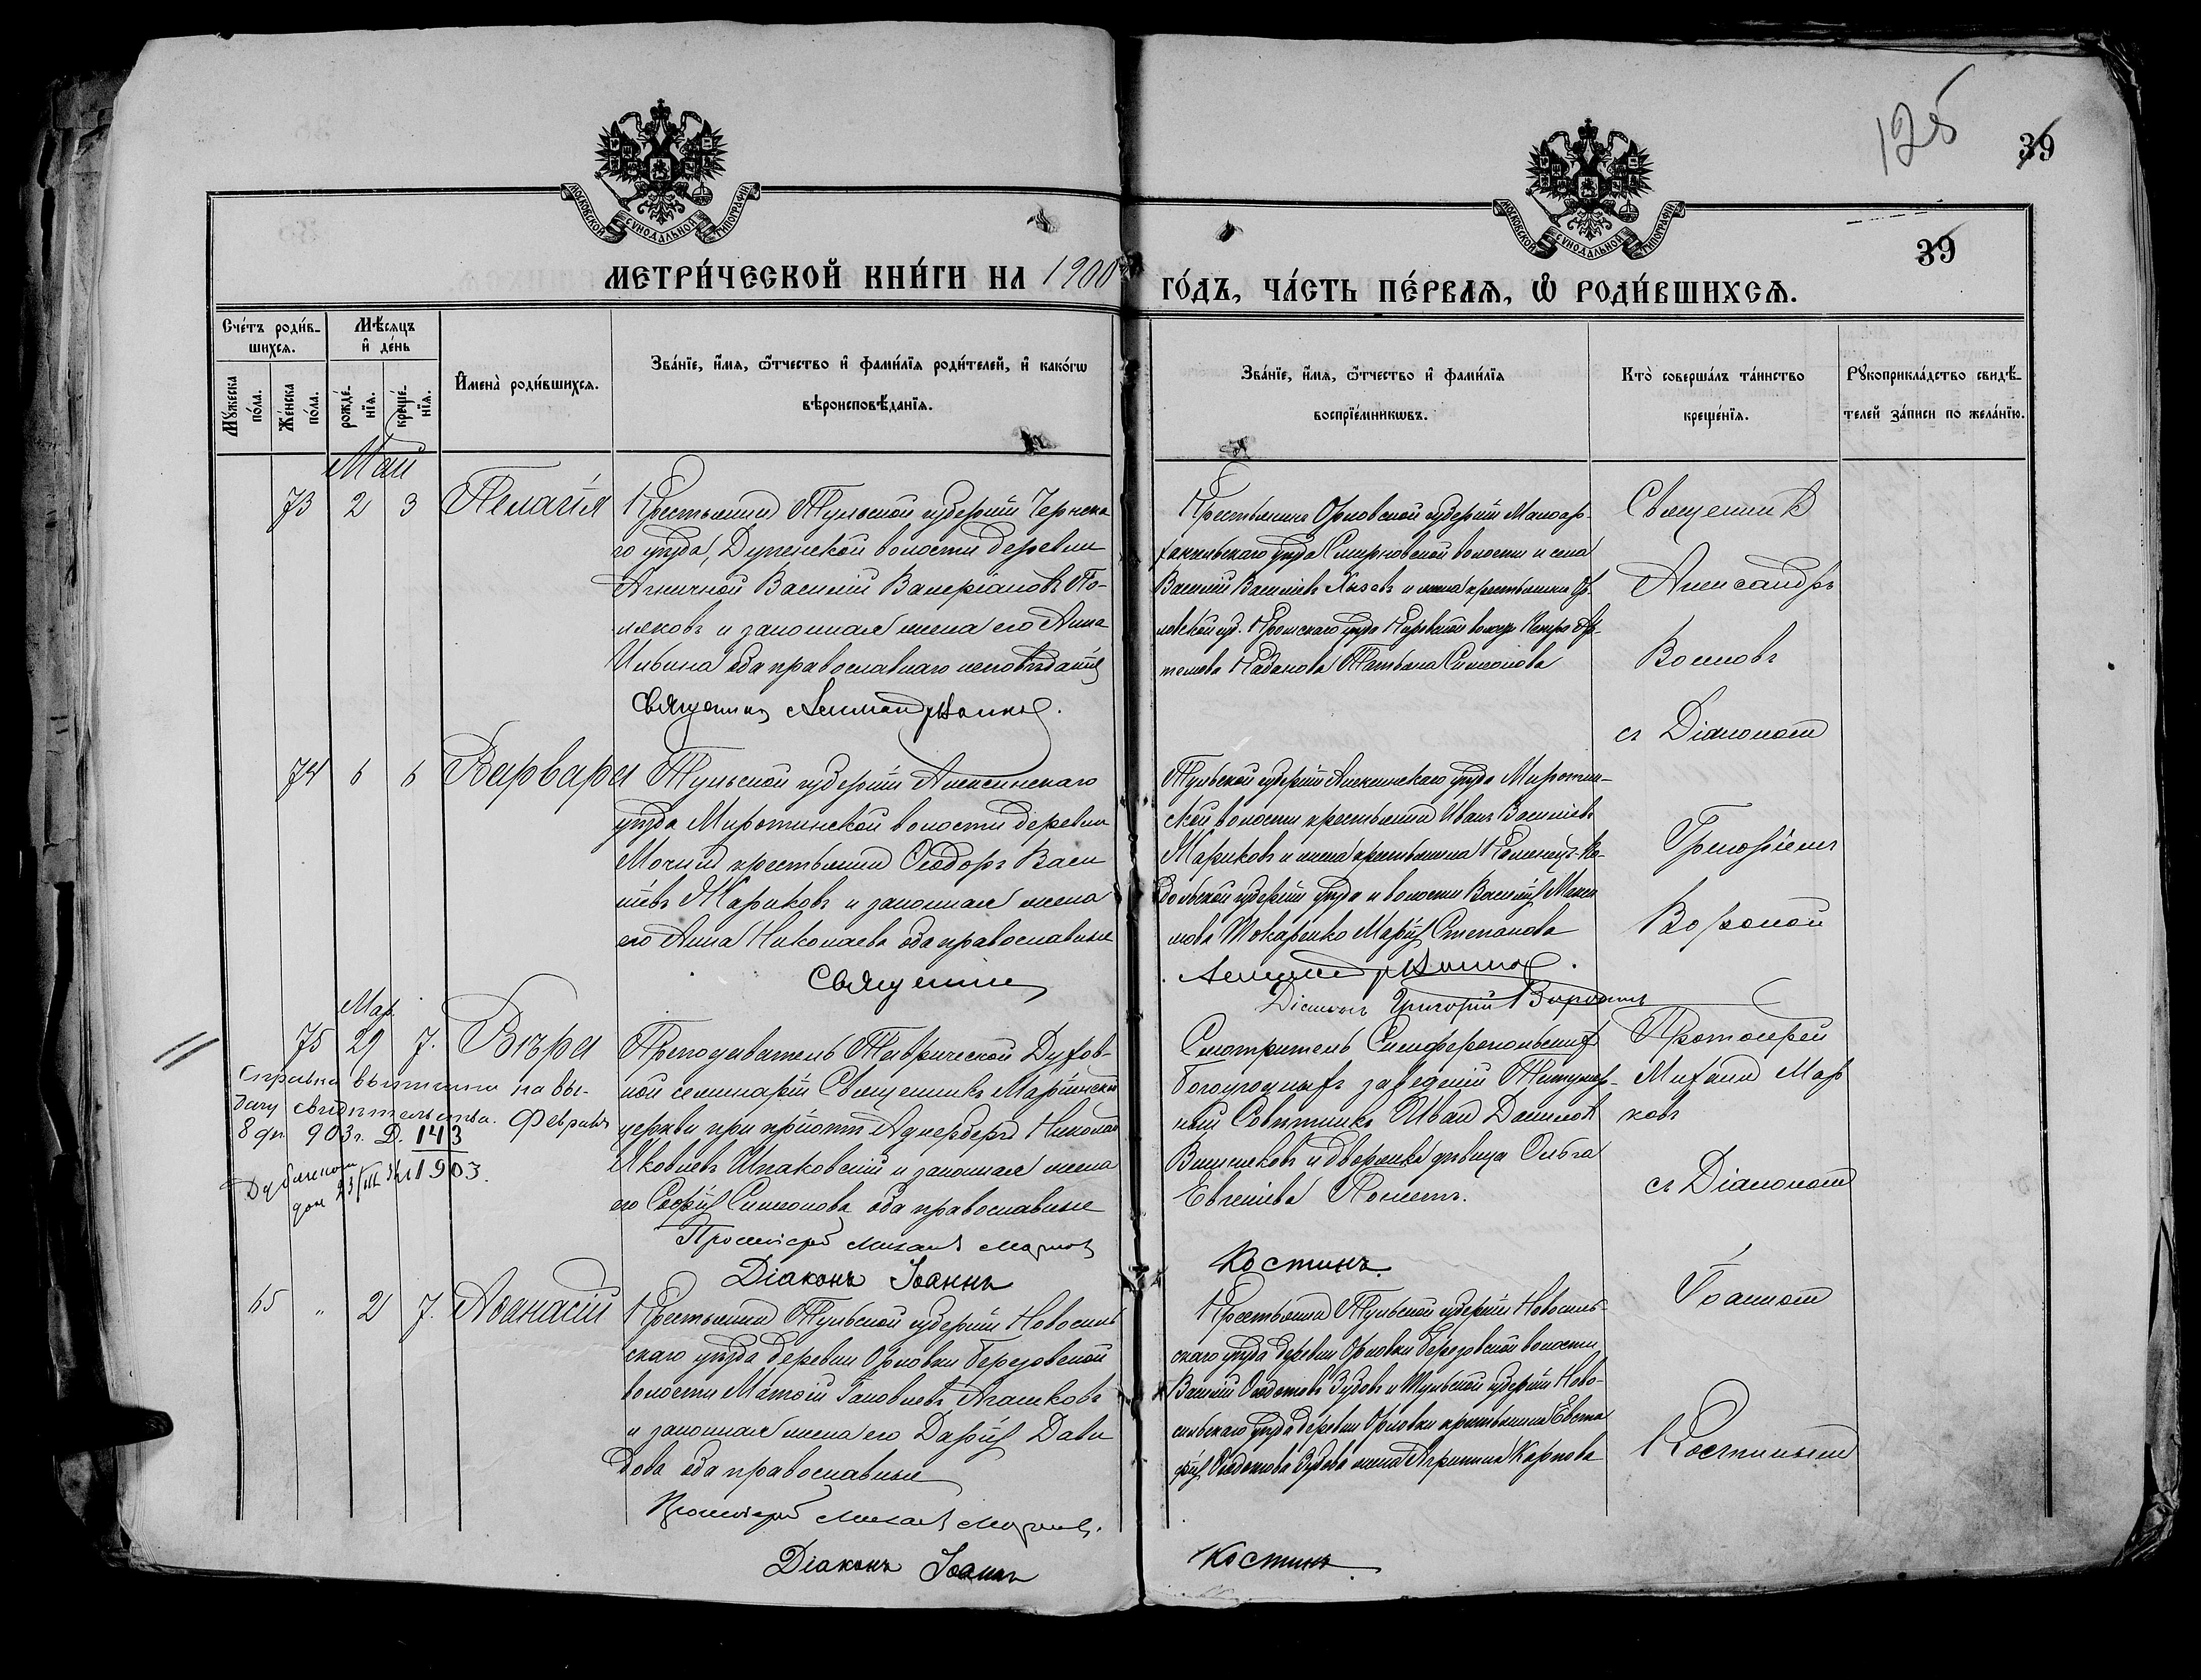 125
39
МОСКОВСКОЙ СѴНОДАЛЬНОЙ ТИПОГРАФІИ
МОСКОВСКОЙ СѴНОДАЛЬНОЙ ТИПОГРАФІИ
39
МЕТРИ́ЧЕСКОЙ КНИ́ГИ НА 1900
ГО́ДЪ, ЧА́СТЬ ПЕ́РВАѦ, Ѡ҆ РОДИ́ВШИХСѦ.
Сче́тъ роди́в-
шихсѧ.
Мꙋжеска по́ла.
Же́нска по́ла.
Мѣ́сяцъ
и҆ де́нь
рожде́-нїѧ.
креще́-нїѧ.
И҆мена̀ роди́вшихсѧ.
Зва́нїе, и҆́мѧ, ѻ҆́тчество и҆ фами́лїѧ роди́телей, и҆ како́гѡ
вѣроисповѣ́данїѧ.
Зва́нїе, и҆́мѧ, ѻ҆́тчество и҆ фами́лїѧ
воспрїе́мникѡвъ.
Кто̀ соверша́лъ та́инство
креще́нїѧ.
Рꙋкоприкла́дство свидѣ́-
телей за́писи по жела́нїю.
Май
73 2 3 Пелагія
Крестьянинъ Тульской губерніи Чернска
го уѣзда, волости деревни
Василій Валеріановъ По-
ляковъ и законная жена его Анна
Ильина оба православнаго исповѣданія
Священникъ
Крестьянинъ Орловской губерніи Малоар-
хангельскаго уѣзда Смирновской волости и села
Василій Васильевъ и жена крестьянина Ор-
ловской губ. Кромскаго уѣзда
Татьяна Симонова
Священникъ
Александръ
Воиновъ
съ Діакономъ
74 6 6 Варвара
Тульской губерніи Алексинскаго
уѣзда Миротинской волости деревни
крестьянинъ Ѳеодоръ Васи
льевъ Жариковъ и законная жена
его Анна Николаева оба православные
Священникъ
Тульской губерніи Алексинскаго уѣзда Миротин-
ской волости крестьянинъ Иванъ Васильевъ
Жариковъ и жена крестьянина Каменецъ-По-
дольской губерніи уѣзда и волости Василія
Токаренко Марія Степанова
Діаконъ Григорій
Григоріемъ
Мар.
75 29 7. Вѣра
Справка на вы-
дачу свидѣтельства. Февраля
8 дн. 903 г. Д. 143
1903.
Преподаватель Таврической Духов-
ной семинаріи Священникъ Маріинской
церкви при пріютѣ Адлерберга Николай
Яковлевъ и законная жена
его Софія Симонова оба православные
Протоіерей Михаилъ Марковъ
Діаконъ Іоаннъ
Смотритель Симферопольскихъ
Богоугодныхъ заведеній Титуляр-
ный Совѣтникъ Иванъ Даниловъ
и дворянка дѣвица Ольга
Евгеніева
Костинъ.
Протоіерей
Михаилъ Мар
ковъ
съ Діакономъ
65 " 2 7. Аѳанасій
Крестьянинъ Тульской губерніи Новосиль
скаго уѣзда деревни Орловки Березовской
волости
и законная жена его Дарія Дави
дова оба православные
Протоіерей Михаилъ Марковъ.
Діаконъ Іоаннъ
Крестьянинъ Тульской губерніи Новосиль-
скаго уѣзда деревни Орловки Березовской волости
Василій Ѳедотовъ Зубовъ и Тульской губерніи Ново-
сильскаго уѣзда деревни Орловки крестьянина Евста
фія Ѳедотова Зубова жена Агрипина Карпова
Костинъ.
Іоанномъ
Костинымъ